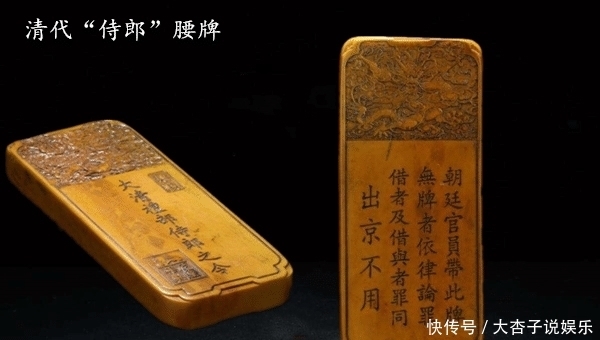 清代“侍郎”腰牌
大清禮部侍郎之令
朝廷官員帶此牌
無牌者依律論罪
借者及借與者罪同
出京不用
快传号／大杏子说娱乐